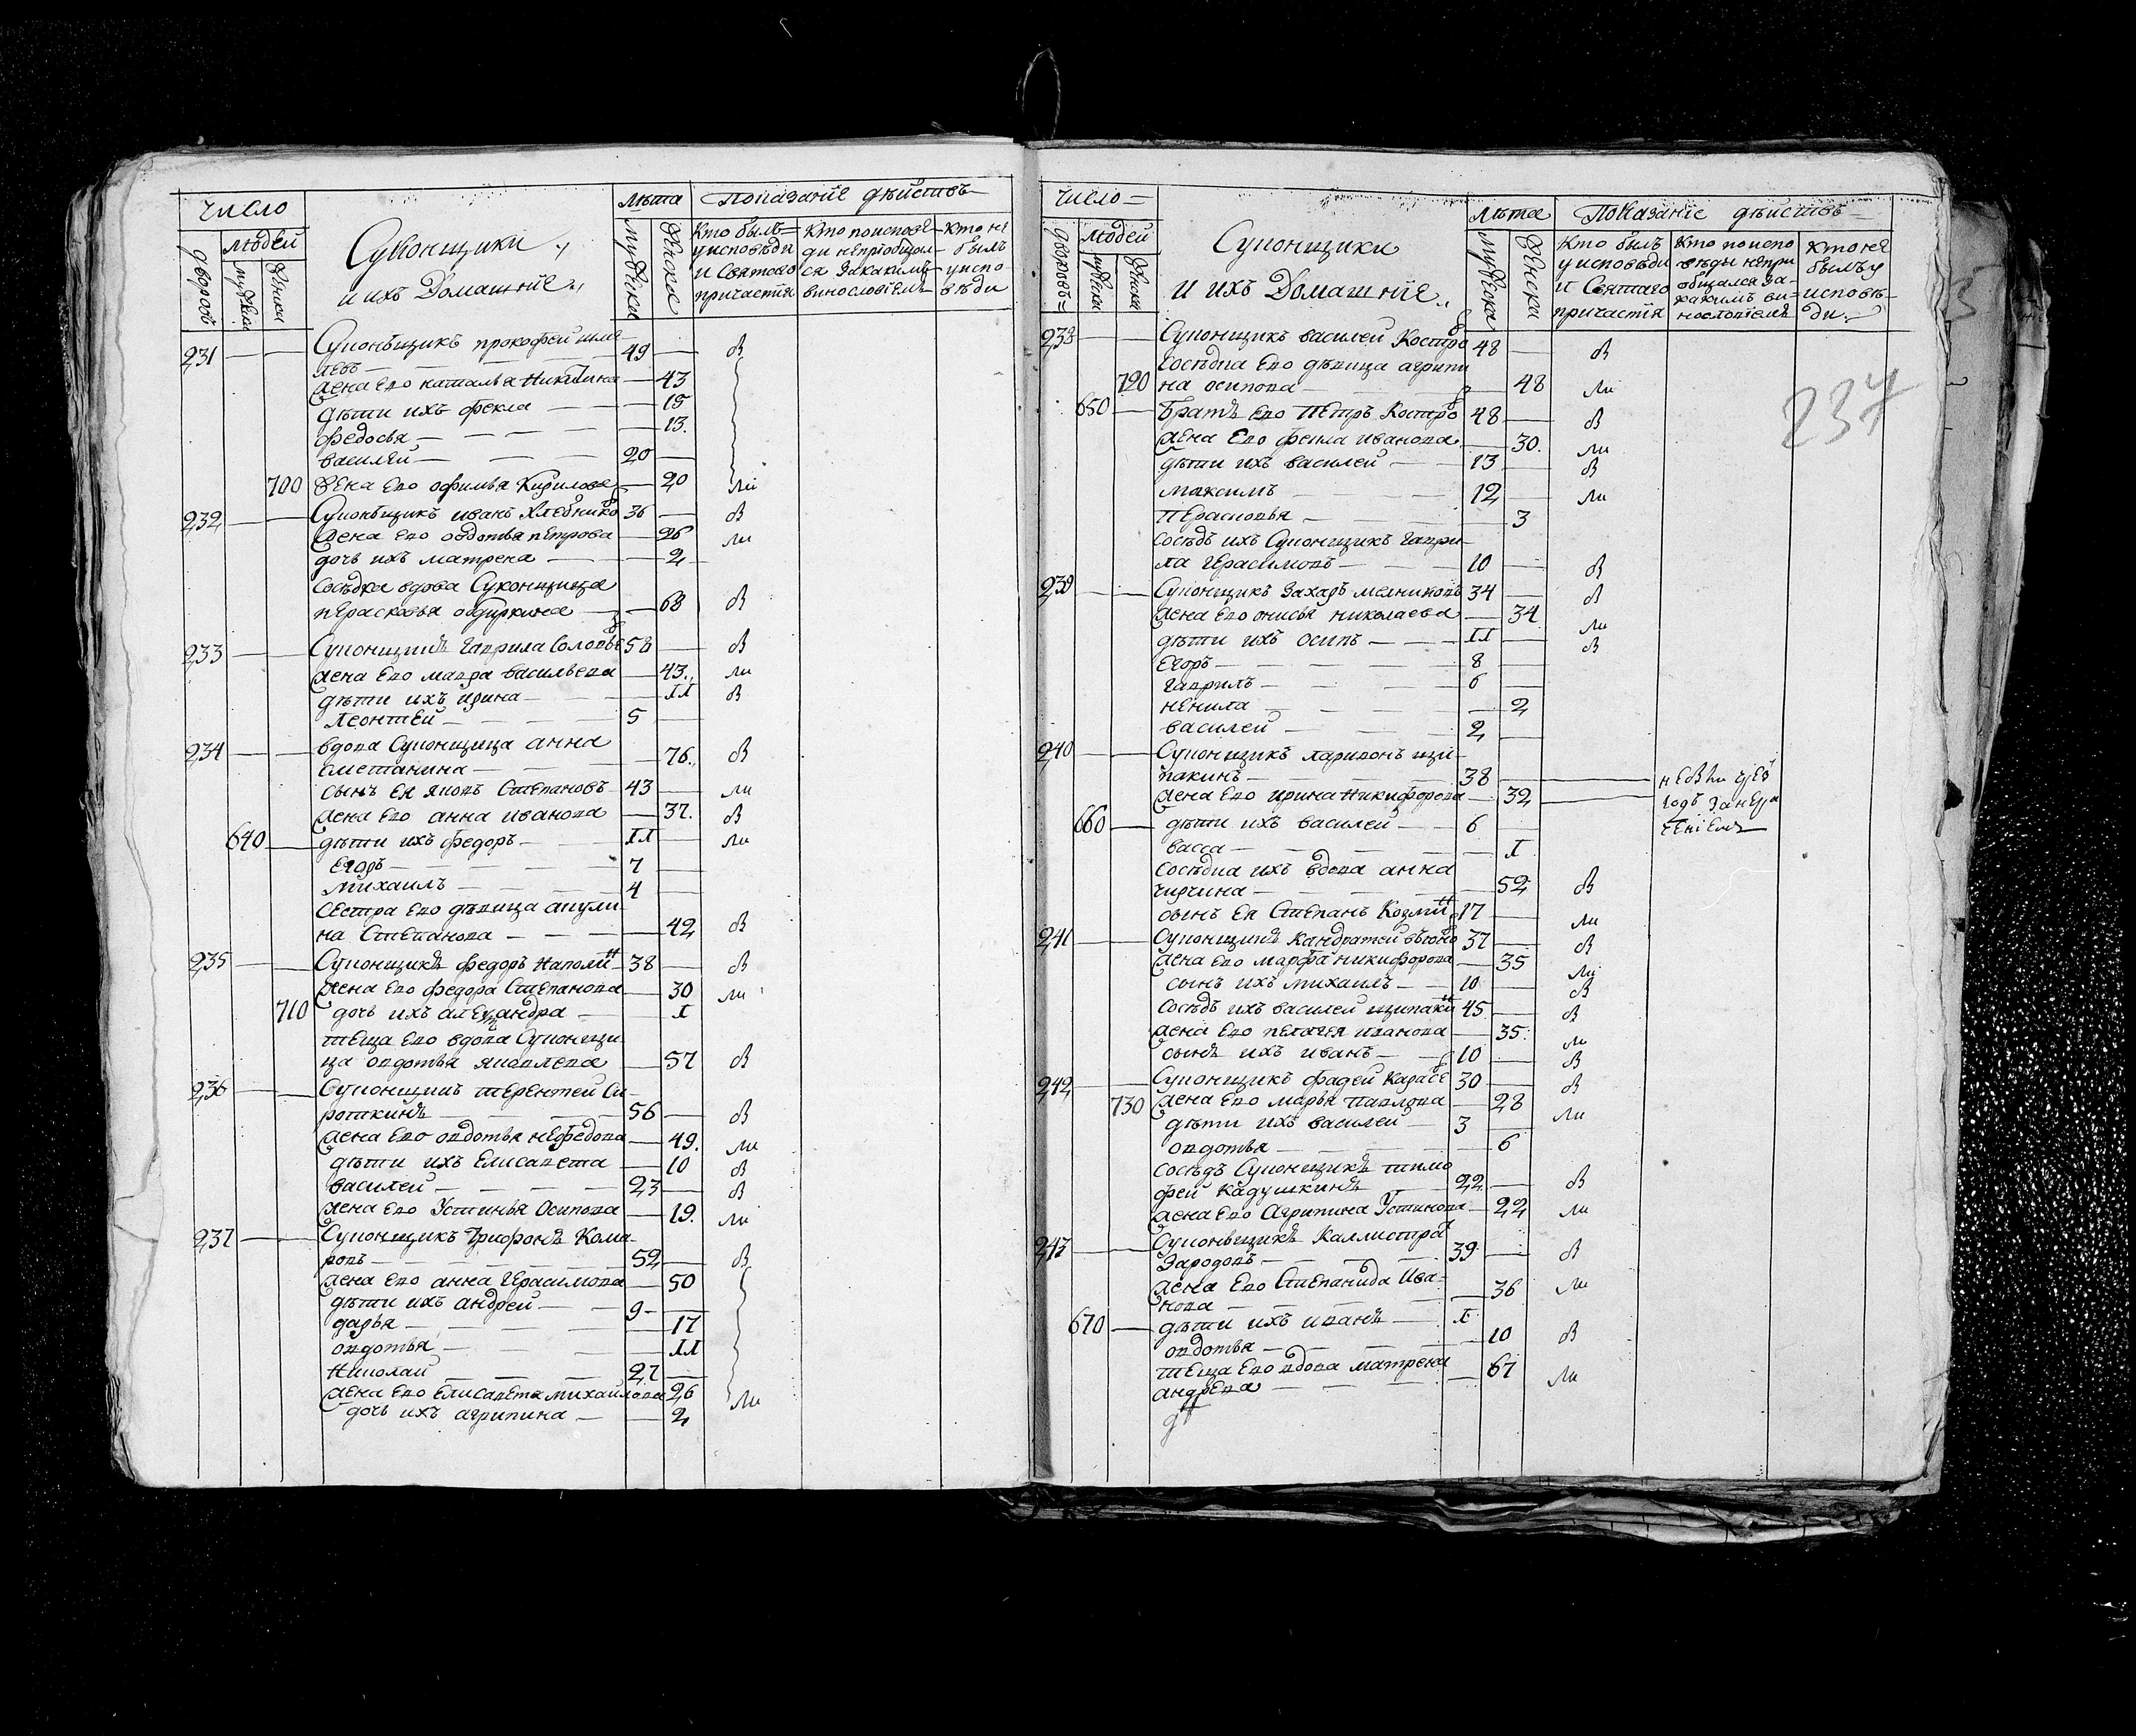 число
Суконщики
и ихъ Домашнїе
лѣта
Показанїе дѣйствъ
дворовъ
людей
мужеска
женска
мужеска
женска
Кто былъ
у исповѣди
и Святаго
причастїя
кто по исповѣ
ди не прїобщал
ся за какимъ
винословїемъ
кто не
былъ
у испо
вѣди
231 Суконьщикъ прокофей
49 в
жена ево наталья Никитина 43
дѣти ихъ фекла 15
федосья 13
василей 20
700 жена ево офимья Кирилова 20 ли
232 Суконьщикъ иванъ Хлебнико 36 в
жена ево овдотья петрова 26 ли
дочь ихъ матрена 2
сосѣдка вдова Суконщица
перасковья обдиркина 68 в
233 Суконщикъ Гаврила Соловье 58 в
жена ево мавра васильева 43 ли
дѣти ихъ ирина 11 в
леонтей 5
234 вдова Суконщица анна
сметанина 76 в
сынъ ея яковъ Степановъ 43 ли
жена ево анна иванова 37 в
640 дѣти ихъ федоръ 11 ли
Егоръ 7
михаилъ 4
сестра ево дѣвица акули
на Степанова 42 в
235 Суконщикъ федоръ Наполи 38 в
жена ево федора Степанова 30 ли
710 дочь ихъ александра 1
теща ево вдова Суконщи
ца овдотья яковлева 57 в
236 Суконщикъ терентей Си
роткинъ 56 в
жена ево овдотья нефедова 49 ли
дѣти ихъ Елисавета 10 в
василей 23 в
жена ево Устинья Осипова 19 ли
237 Суконщикъ Трифонъ Кома
ровъ 52 в
жена ево анна Герасимова 50
дѣти ихъ андрей 9
дарья 17
овдотья 11
Николай 27
жена ево Елисавета михайлова 26 ли
дочь ихъ агрипина 2
число
Суконщики
и ихъ Домашнїе
лѣта
Показанїе дѣйствъ
дворовъ
людей
мужеска
женска
мужеска
женска
Кто былъ
у исповѣди
и Святаго
причастїя
Кто по испо
вѣди не при
общался за
какимъ ви
нословїемъ
Кто не
былъ у
исповѣ
ди
237
238 Суконщикъ василей Костро 48 в
сосѣдка ево дѣвица агрипи
720 на осипова 48 ли
650 братъ ево Петръ Костро 48 в
жена ево фекла иванова 30 ли
дѣти ихъ василей 13 в
максимъ 12 ли
Перасковья 3
сосѣдъ ихъ Суконщикъ Гаври
ла Герасимовъ 10 в
239 Суконщикъ Захаръ мелниковъ 34 в
жена ево онисья николаева 34 ли
дѣти ихъ осипъ 11 в
Егоръ 8
гаврилъ 6
ненила 2
василей 2
240 Суконщикъ ларивонъ щи
пакинъ 38
жена ево ирина никифорова 32
660 дѣти ихъ василей 6
васса 1
сосѣдка ихъ вдова анна
52 в
сынъ ея Степанъ Козми 17 ли
241 Суконщикъ Кандратей 37 в
жена ево марфа никифорова 35 ли
сынъ ихъ михаилъ 10 в
сосѣдъ ихъ василей щипаки 45 в
жена ево пелагея иванова 35 ли
сынъ ихъ иванъ 10 в
242 Суконщикъ фадей Карасе 30 в
730 жена ево марья Павлова 28 ли
дѣти ихъ василей 3
овдотья 6
сосѣдъ Суконщикъ тимо
фей Кадушкинъ 22 в
жена ево Агрипина Устинова 22 ли
243 Суконьщикъ Каллистра
Зародовъ 39 в
жена ево Степанида Ива
нова 36 ли
670 дѣти ихъ иванъ 1
овдотья 10 в
теща ево вдова матрена
андрева 67 ли